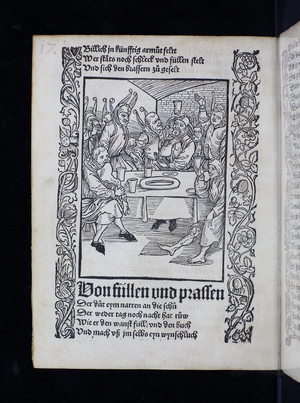 17.
Billich in künfftig armůt felt
Wer stäts noch schleck vnd füllen stelt
Vnd sich den brassern zů geselt
Von füllen vnd prassen
Der důt eym narren an die schů
Der weder tag noch nacht hat růw
Wie er den wanst füll, vnd den buch
Vnd mach vß im selbs eyn wynschluch